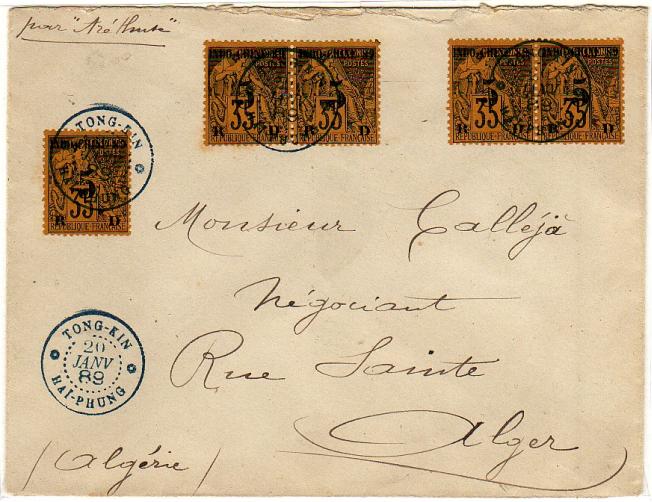 par "Aréthuse"
INDO-CHINE 89 INDO-CHINE 89 INDO-CHINE 89 INDO-CHINE 89
POSTES POSTES POSTES POSTES
5 5 5 5
35 35 35 35
R D R D R D R D
REPUBLIQUE FRANÇAISE REPUBLIQUE FRANÇAISE REPUBLIQUE FRANÇAISE REPUBLIQUE FRANÇAISE
TONG-KIN
INDO-CHINE 89
5
35
R D
REPUBLIQUE FRANÇAISE
Monsieur Calléjà
Négociant
TONG-KIN
20
JANV
89
HAI-PHUNG
Rue Sainte
Alger
(Algérie)